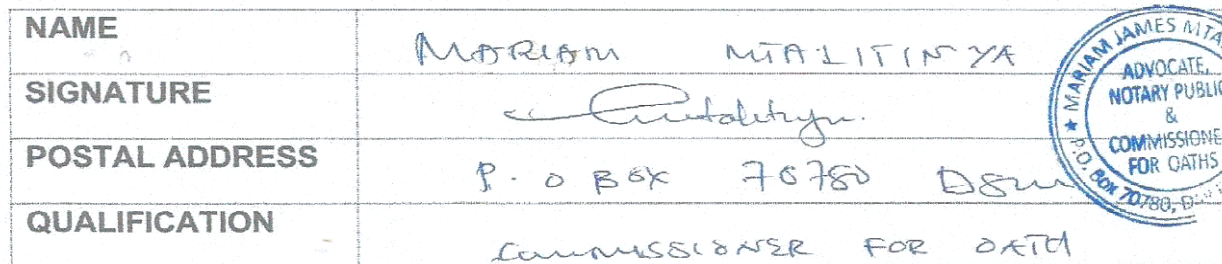 NAME MARIAM MTALITINYA
SIGNATURE Mtalitinya.
POSTAL ADDRESS P. O BOX 70780 DSM
QUALIFICATION COMMISSIONER FOR OATH
★ MARIAM JAMES MTA
ADVOCATE,
NOTARY PUBLIC
&
COMMISSIONE
FOR OATHS
P.O. BOX 70780, D